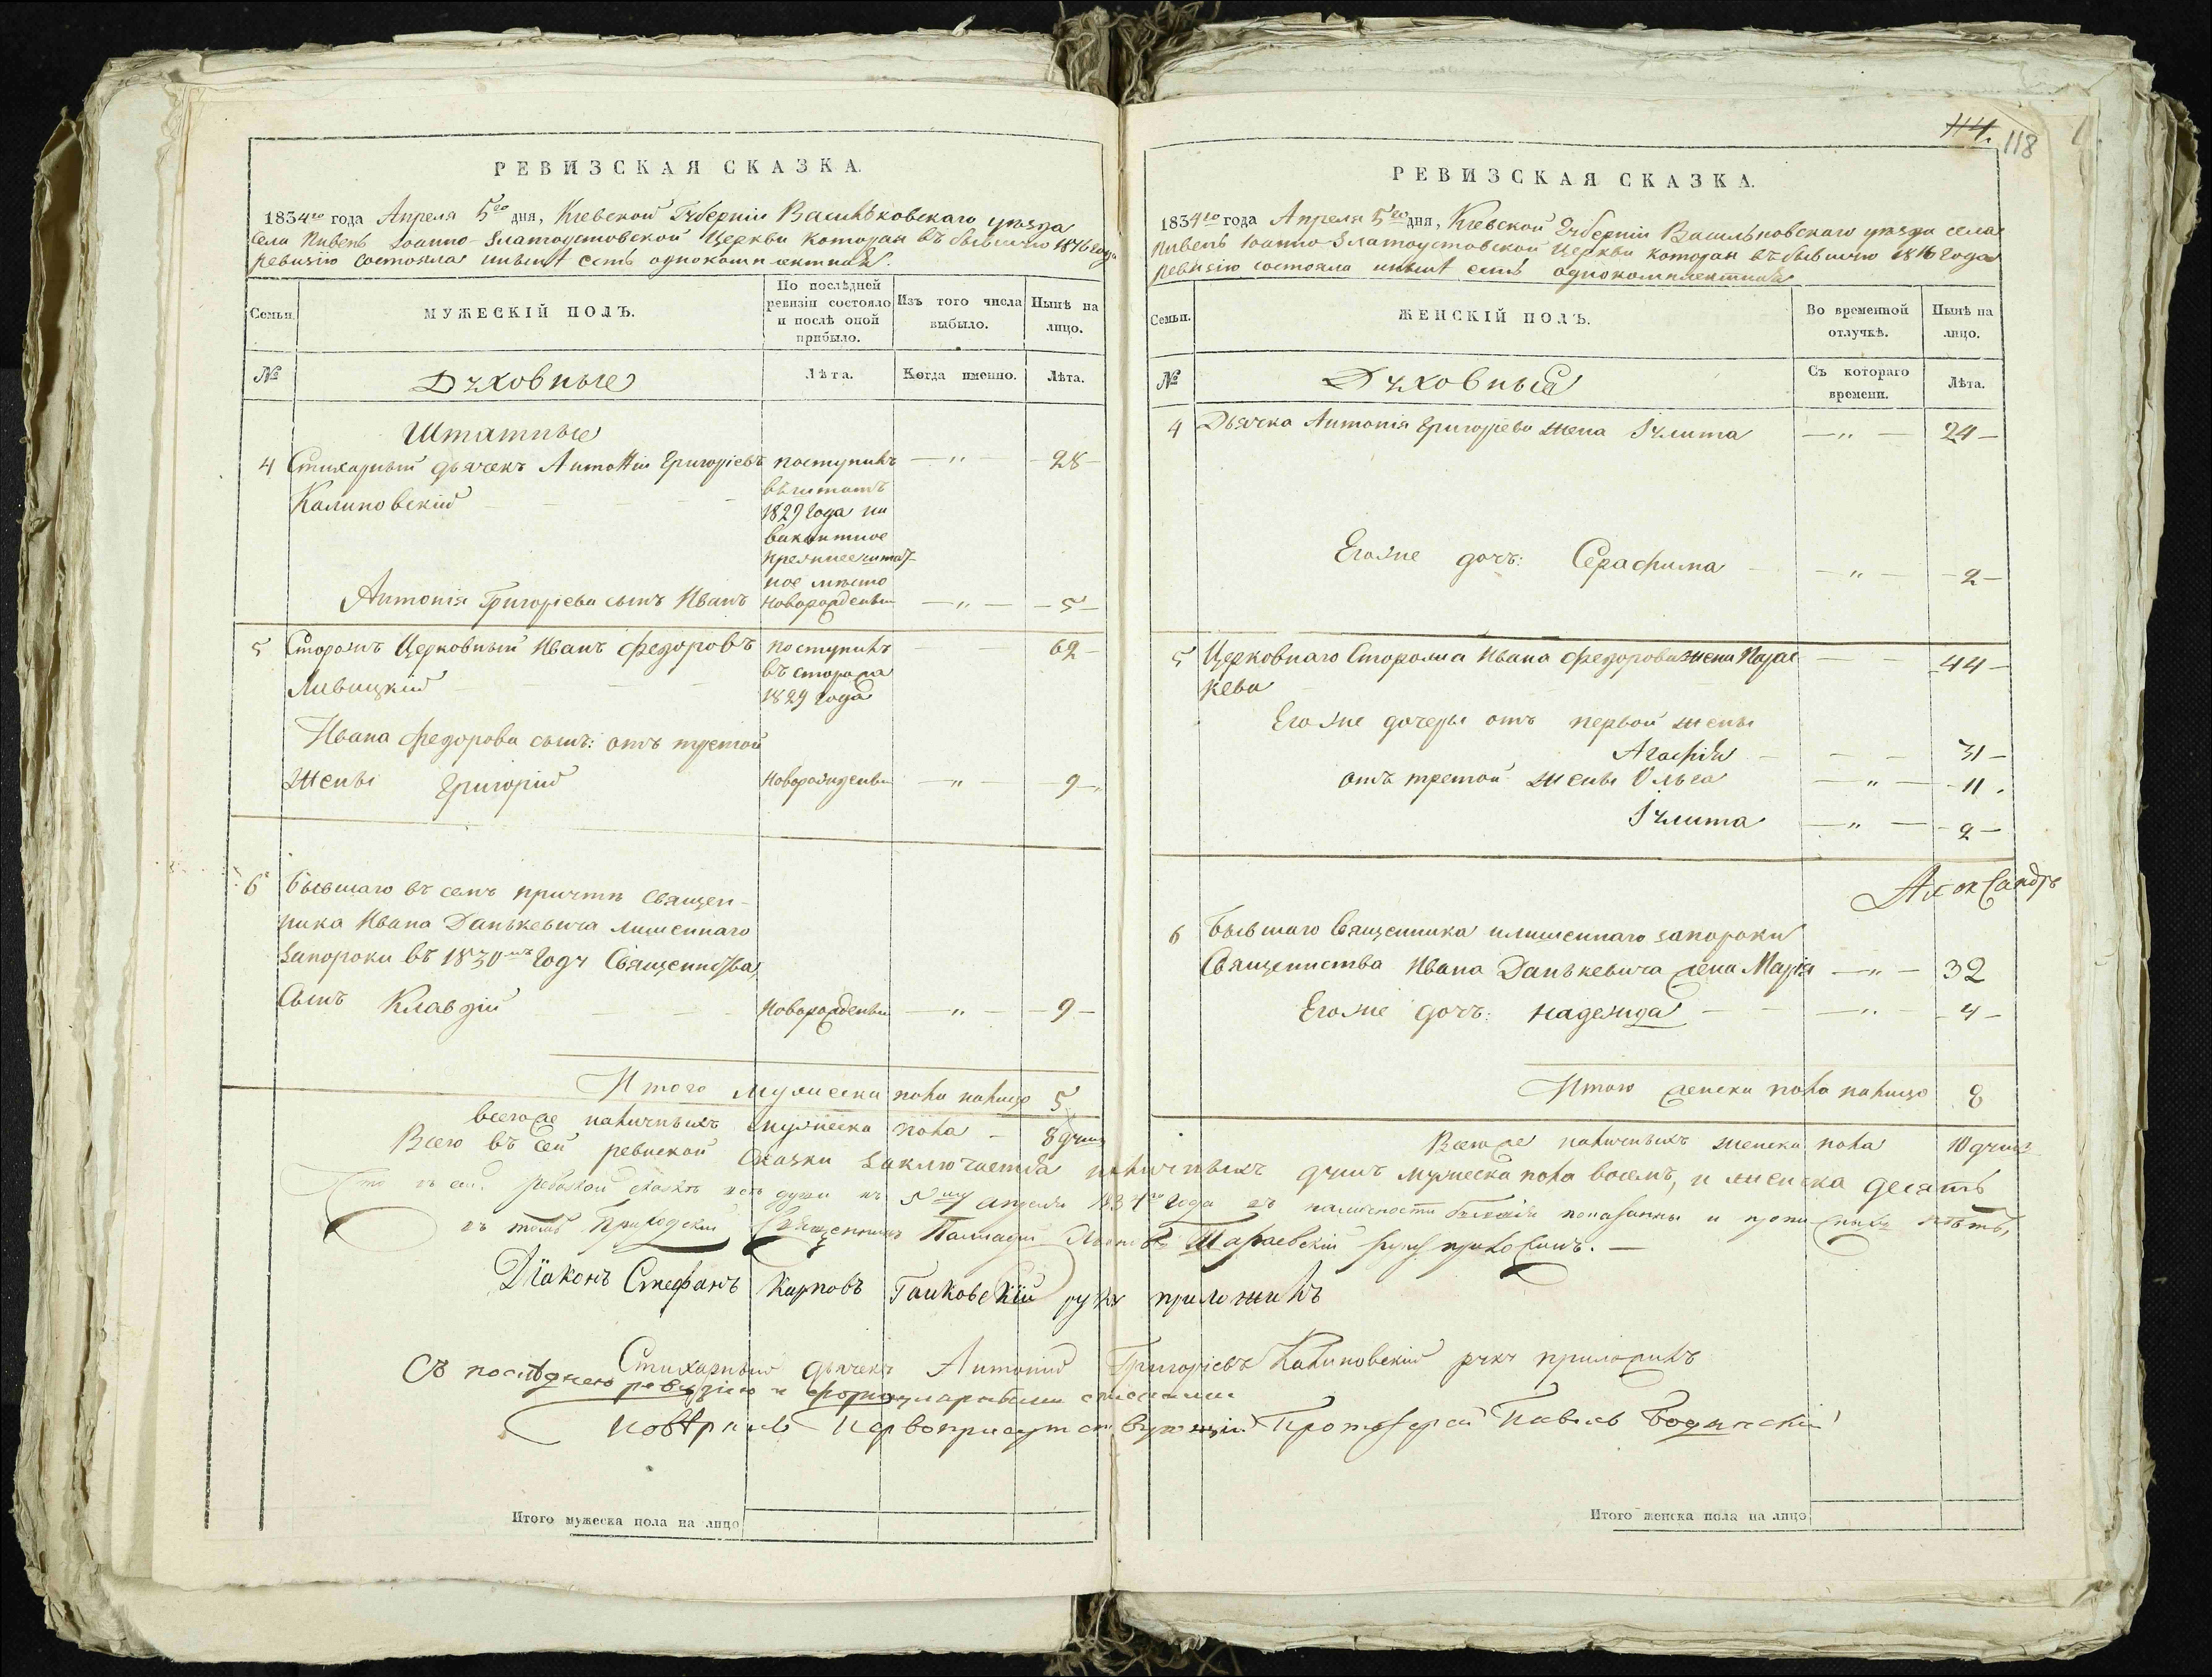 РЕВИЗСКАЯ СКАЗКА.
1834го года Апреля 5го дня, Кіевской Губерніи Васильковскаго уезда
села Пивень Іоанно-Златоустовской Церкви которая въ бывшую 1816 года
ревизію состояла и ныне есть однокомплектная.
Семьи.
МУЖЕСКІЙ ПОЛЪ.
По послѣдней ревизіи состояло и послѣ оной прибыло.
Изъ того числа выбыло.
Нынѣ на лицо.
№
Духовные
Лѣта.
Когда именно.
Лѣта.
Штатные
4 Стихарный дьячекъ Антоній Григоріевъ поступилъ — " — 28 —
Калиновскій въ штатъ
1829 года на
вакантное
праздное штат-
ное место
Антонія Григоріева сынъ Иванъ новорожденый — " — 5 —
5 Сторожъ Церковный Иванъ Федоровъ поступилъ — — 62 —
Ливицкій въ сторожа
1829 года
Ивана Федорова сынъ: отъ третой
жены Григорій новорожденый — " — 9 —
6 бывшаго въ семъ причте Священ-
ника Ивана Данькевича лишеннаго
за пороки въ 1830мъ году Священства,
Сынъ Клавдій новорожденый — " — 9 —
Итого мужеска пола налицо 5
Всегоже наличныхъ мужеска пола — 8 душъ
114. 118
РЕВИЗСКАЯ СКАЗКА.
1834го года Апреля 5го дня, Кіевской Губерніи Васильковскаго уезда села
Пивень Іоанно-Златоустовской Церкви которая въ бывшую 1816 года
ревизію состояла и ныне есть однокомплектная
Семьи.
ЖЕНСКІЙ ПОЛЪ.
Во временной отлучкѣ.
Нынѣ на лицо.
№
Духовныя
Съ котораго времени.
Лѣта.
4 Дьячка Антонія Григоріева жена Іулита — " — 24 —
Егоже дочь: Серафима — " — 2 —
5 Церковнаго Сторожа Ивана Федорова жена Парас — — 44 —
кева
Егоже дочеры отъ первой жены
Агафія — — 31 —
отъ третой жены Ольга — " — 11
Іулита — " — 2 —
Александръ
6 Бывшаго Священника и лишеннаго за пороки
Священства Ивана Данькевича жена Марія — " — 32
Егоже дочь: Надежда — " — 4 —
Итого женска пола налицо 8
Всегоже наличныхъ женска пола 10 душъ
Всего въ сей ревиской сказки заключается наличныхъ душъ мужеска пола восемъ, и женска десять
Что въ сей ревизской сказкѣ все души къ 5му апреля 1834го года въ наличности показанны и прописныхъ нѣтъ,
въ томъ Приходскій Священникъ Шараевскій руку приложилъ. —
Діаконъ Стефанъ Карповъ Ганковскій руку приложилъ
Стихарный дьячекъ Антоній Григоріевъ Калиновскій руку приложилъ
Съ последнею ревизіею и формулярными списками
повѣрилъ Первоприсутствующій Протоіерей Павелъ Бодянскій
Итого мужеска пола на лицо
Итого женска пола на лицо